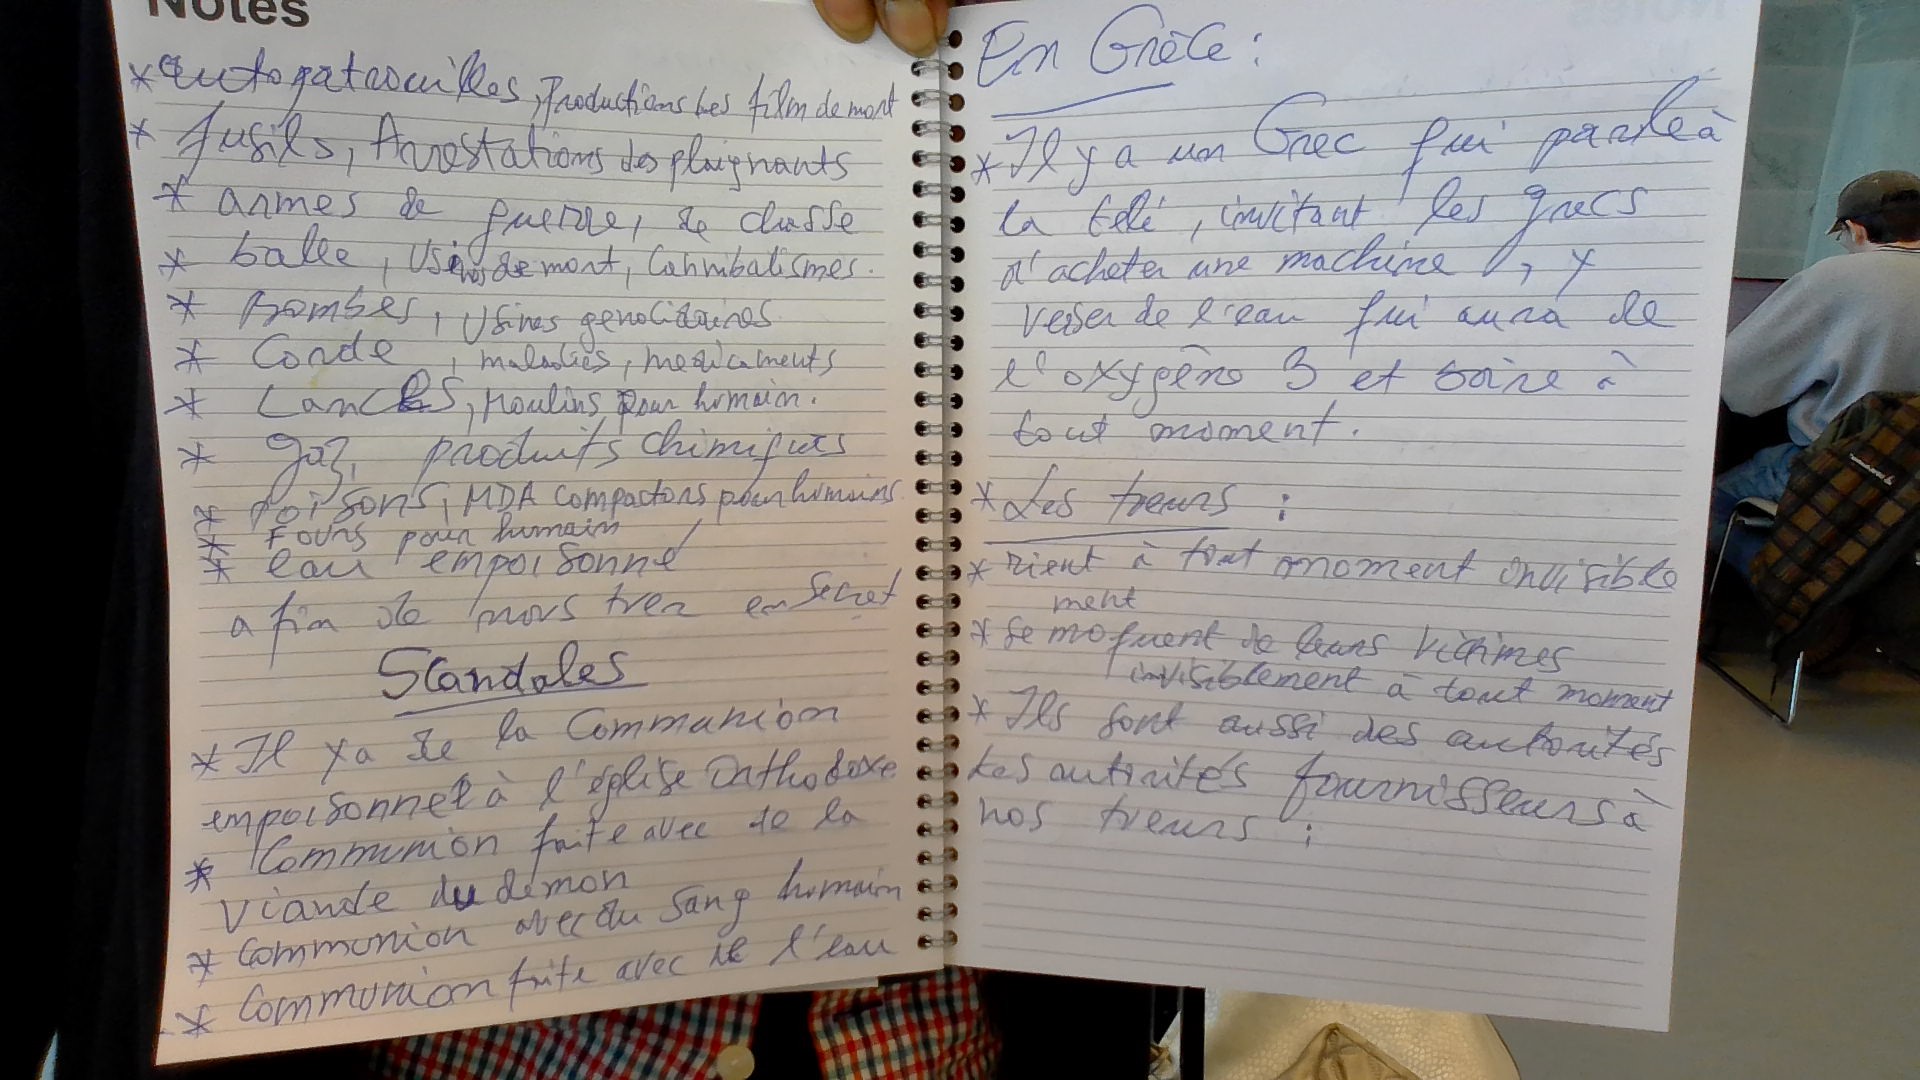 Notes
* autopatrouilles, Productions des film de mort
* fusils, Arrestations des plaignants
* armes de guerre, de chasse
* balle, Usines de mort, Cannibalismes.
* Bombes, Usines genocidaires
* Corde, maladies, medicaments
* Lances, moulins pour humain.
* gaz, produits chimiques
* Poisons, MDA compactors pour humains
* Fours pour humain
* eau empoisonné
afin de nous tuer en secret
Scandales
* Il y a de la Communion
empoisonnet à l'église Orthodoxe
* Communion faite avec de la
viande du démon
* Communion avec du sang humain
* Communion faite avec de l'eau
En Grèce :
* Il y a un Grec qui parle à
la télé, invitant les grecs
d'acheter une machine, y
verser de l'eau qui aura de
l'oxygène 3 et boire à
tout moment.
* Les tueurs :
* rient à tout moment invisible
ment
* se moquent de leurs victimes
invisiblement à tout moment
* Ils sont aussi des autorités
Les autorités fournisseurs à
nos tueurs :